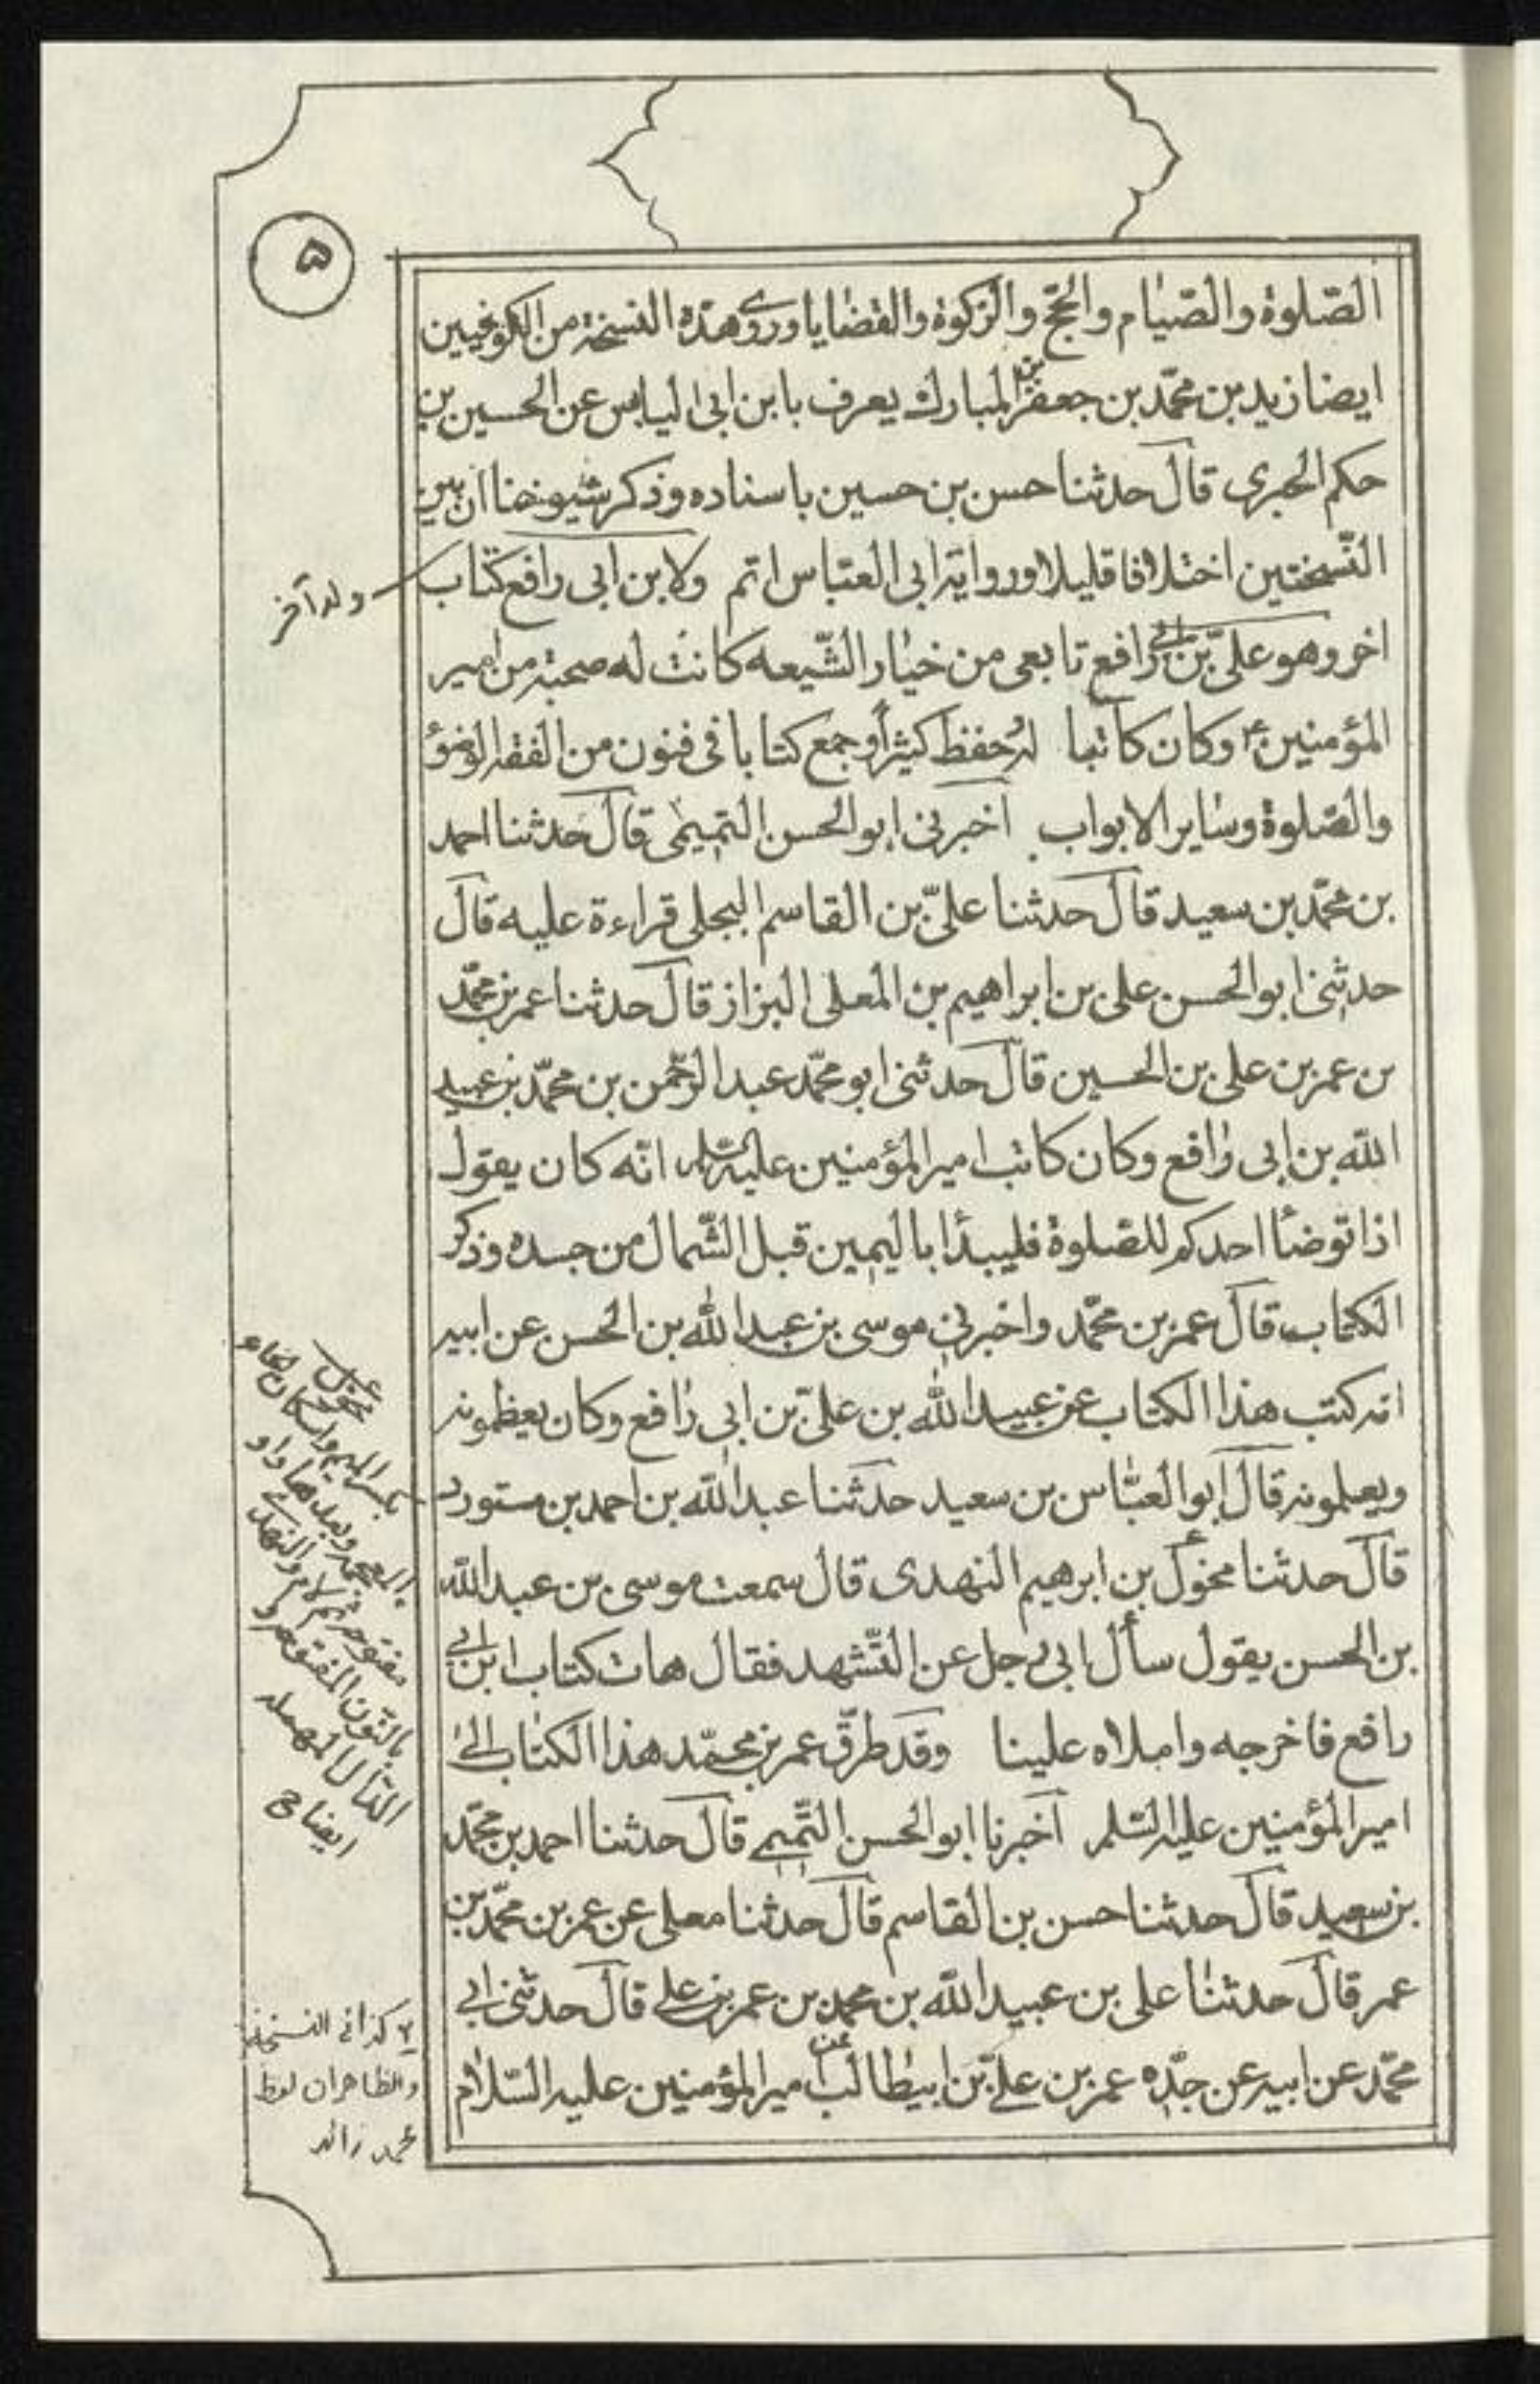 ۵
الصّلوة والصّيام والحجّ والزكوة والقضايا وروى هذه النسخة من الكوفيين
ايضا زيد بن محمّد بن جعفر بن المبارك يعرف بابن ابى الياس عن الحسين بن
حكم الحبرى قال حدثنا حسن بن حسين باسناده وذكر شيوخنا ان بين
النّسختين اختلافا قليلا ورواية ابى العبّاس اتم ولابن ابى رافع كتاب
اخر وهو علىّ بن ابى رافع تابعى من خيار الشّيعه كانت له صحبة من امير
المؤمنين ع وكان كاتبا له وحفظ كثيرًا وجمع كتابا فى فنون من الفقه الوضوء
والصّلوة وساير الابواب اخبرنى ابو الحسن التميمى قال حدثنا احمد
بن محمّد بن سعيد قال حدثنا علىّ بن القاسم البجلى قراءة عليه قال
حدثنى ابو الحسن على بن ابراهيم بن المعلى البزاز قال حدثنا عمر بن محمّد
بن عمر بن على بن الحسين قال حدثنى ابو محمّد عبد الرحّمن بن محمّد بن عبيد
الله بن ابى رافع وكان كاتب امير المؤمنين عليه السّلم انّه كان يقول
اذا توضأ احدكم للصّلوة فليبدأ باليمين قبل الشّمال من جسده وذكر
الكتاب قال عمر بن محمّد واخبرنى موسى بن عبد الله بن الحسن عن ابيه
انه كتب هذا الكتاب عن عبيد الله بن علىّ بن ابى رافع وكان يعظمونه
ويعلمونه قال ابو العبّاس بن سعيد حدّثنا عبد الله بن احمد بن مستورد
قال حدثنا مخوّل بن ابرهيم النهدى قال سمعت موسى بن عبد الله
بن الحسن يقول سأل ابى رجل عن التّشهد فقال هات كتاب ابن ابى
رافع فاخرجه واملاه علينا وقد طرّق عمر بن محمّد هذا الكتاب الى
امير المؤمنين عليه السّلم اخبرنا ابو الحسن التّميمى قال حدثنا احمد بن محمّد
بن سعيد قال حدثنا حسن بن القاسم قال حدثنا معلى عن عمر بن محمّد بن
عمر قال حدثنا على بن عبيد الله بن محمد بن عمر بن على قال حدثنى ابى
محمّد عن ابيه عن جدّه عمر بن علىّ بن ابيطالب عن امير المؤمنين عليه السّلام
ولد آخر
مخول
بكسر الميم واسكان الخاء
المعجمه وبعدها واو
مفتوحه ثم لام والنهدى
بالنّون المفتوحه و
الدّال المهمله
ايضاح
كذا فى النسخة
والظاهر ان لفظ
محمد زائد